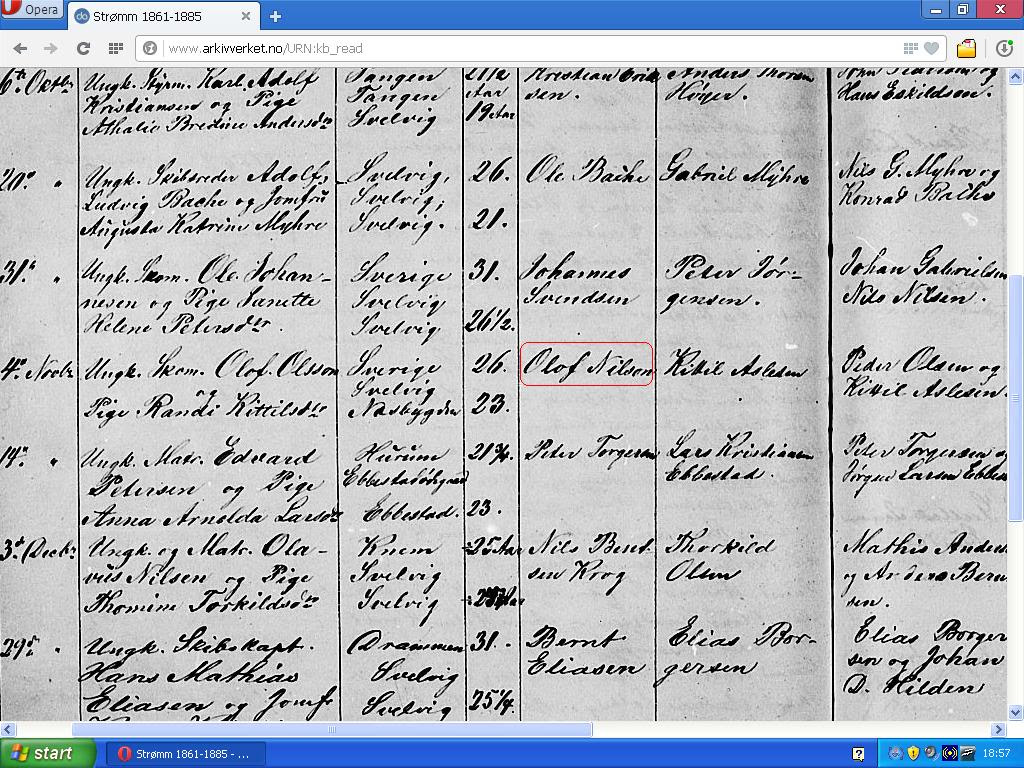 Opera
Strømm 1861-1885
www.arkivverket.no/URN:kb_read
6te Octbr Ungk. Styrm. Karl Adolf Tangen 21½ Kristian Erik Anders Thoron John Pedersen og
Kristiansen og Pige Tangen Aar sen. Høyer. Hans Eskildsen.
Athalie Bredine Andersdtr Svelvig 19 Aar
20de " Ungk. Skibsreder Adolf Svelvig, 26. Ole Bache Gabriel Myhre Nils G. Myhre og
Ludvig Bache og Jomfru Svelvig, Konrad Bache
Augusta Katrine Myhre Svelvig. 21.
31te " Ungk. Skom. Ole Johan- Sverige 31. Johannes Peter Jør- Johan Gabrielsen
nesen og Pige Janette Svelvig Svendsen gensen. Nils Nilsen.
Helene Petersdtr. Svelvig 26½.
4de Novbr Ungk. Skom. Olof Olsson Sverige 26. Olof Nilson Kittil Aslesen Peder Olsen og
og Svelvig Kittil Aslesen.
Pige Randi Kittilsdtr Næsbygden 23.
14de " Ungk. Matr. Edvard Hurum 21¾. Peter Torgersen Lars Kristiansen Peter Torgersen og
Petersen og Pige Ebbestad Jørgen Larsen Ebbes
Anna Arnolda Larsdtr Ebbestad. 23.
3die Decbr Ungk. og Matr. Ola- Knem 25 Aar Nils Bent- Thorkild Mathis Anders
vus Nilsen og Pige Svelvig sen Krog Olsen og Anders Bern
Thomine Torkildsdtr Svelvig sen.
29de " Ungk. Skibskapt. Drammen 31. Bernt Elias Bor- Elias Borger
Hans Mathias Svelvig Eliasen gersen sen og Johan
Eliasen og Jomfr Svelvig 25¼. D. Hilden
start
Strømm 1861-1885 - ...
18:57